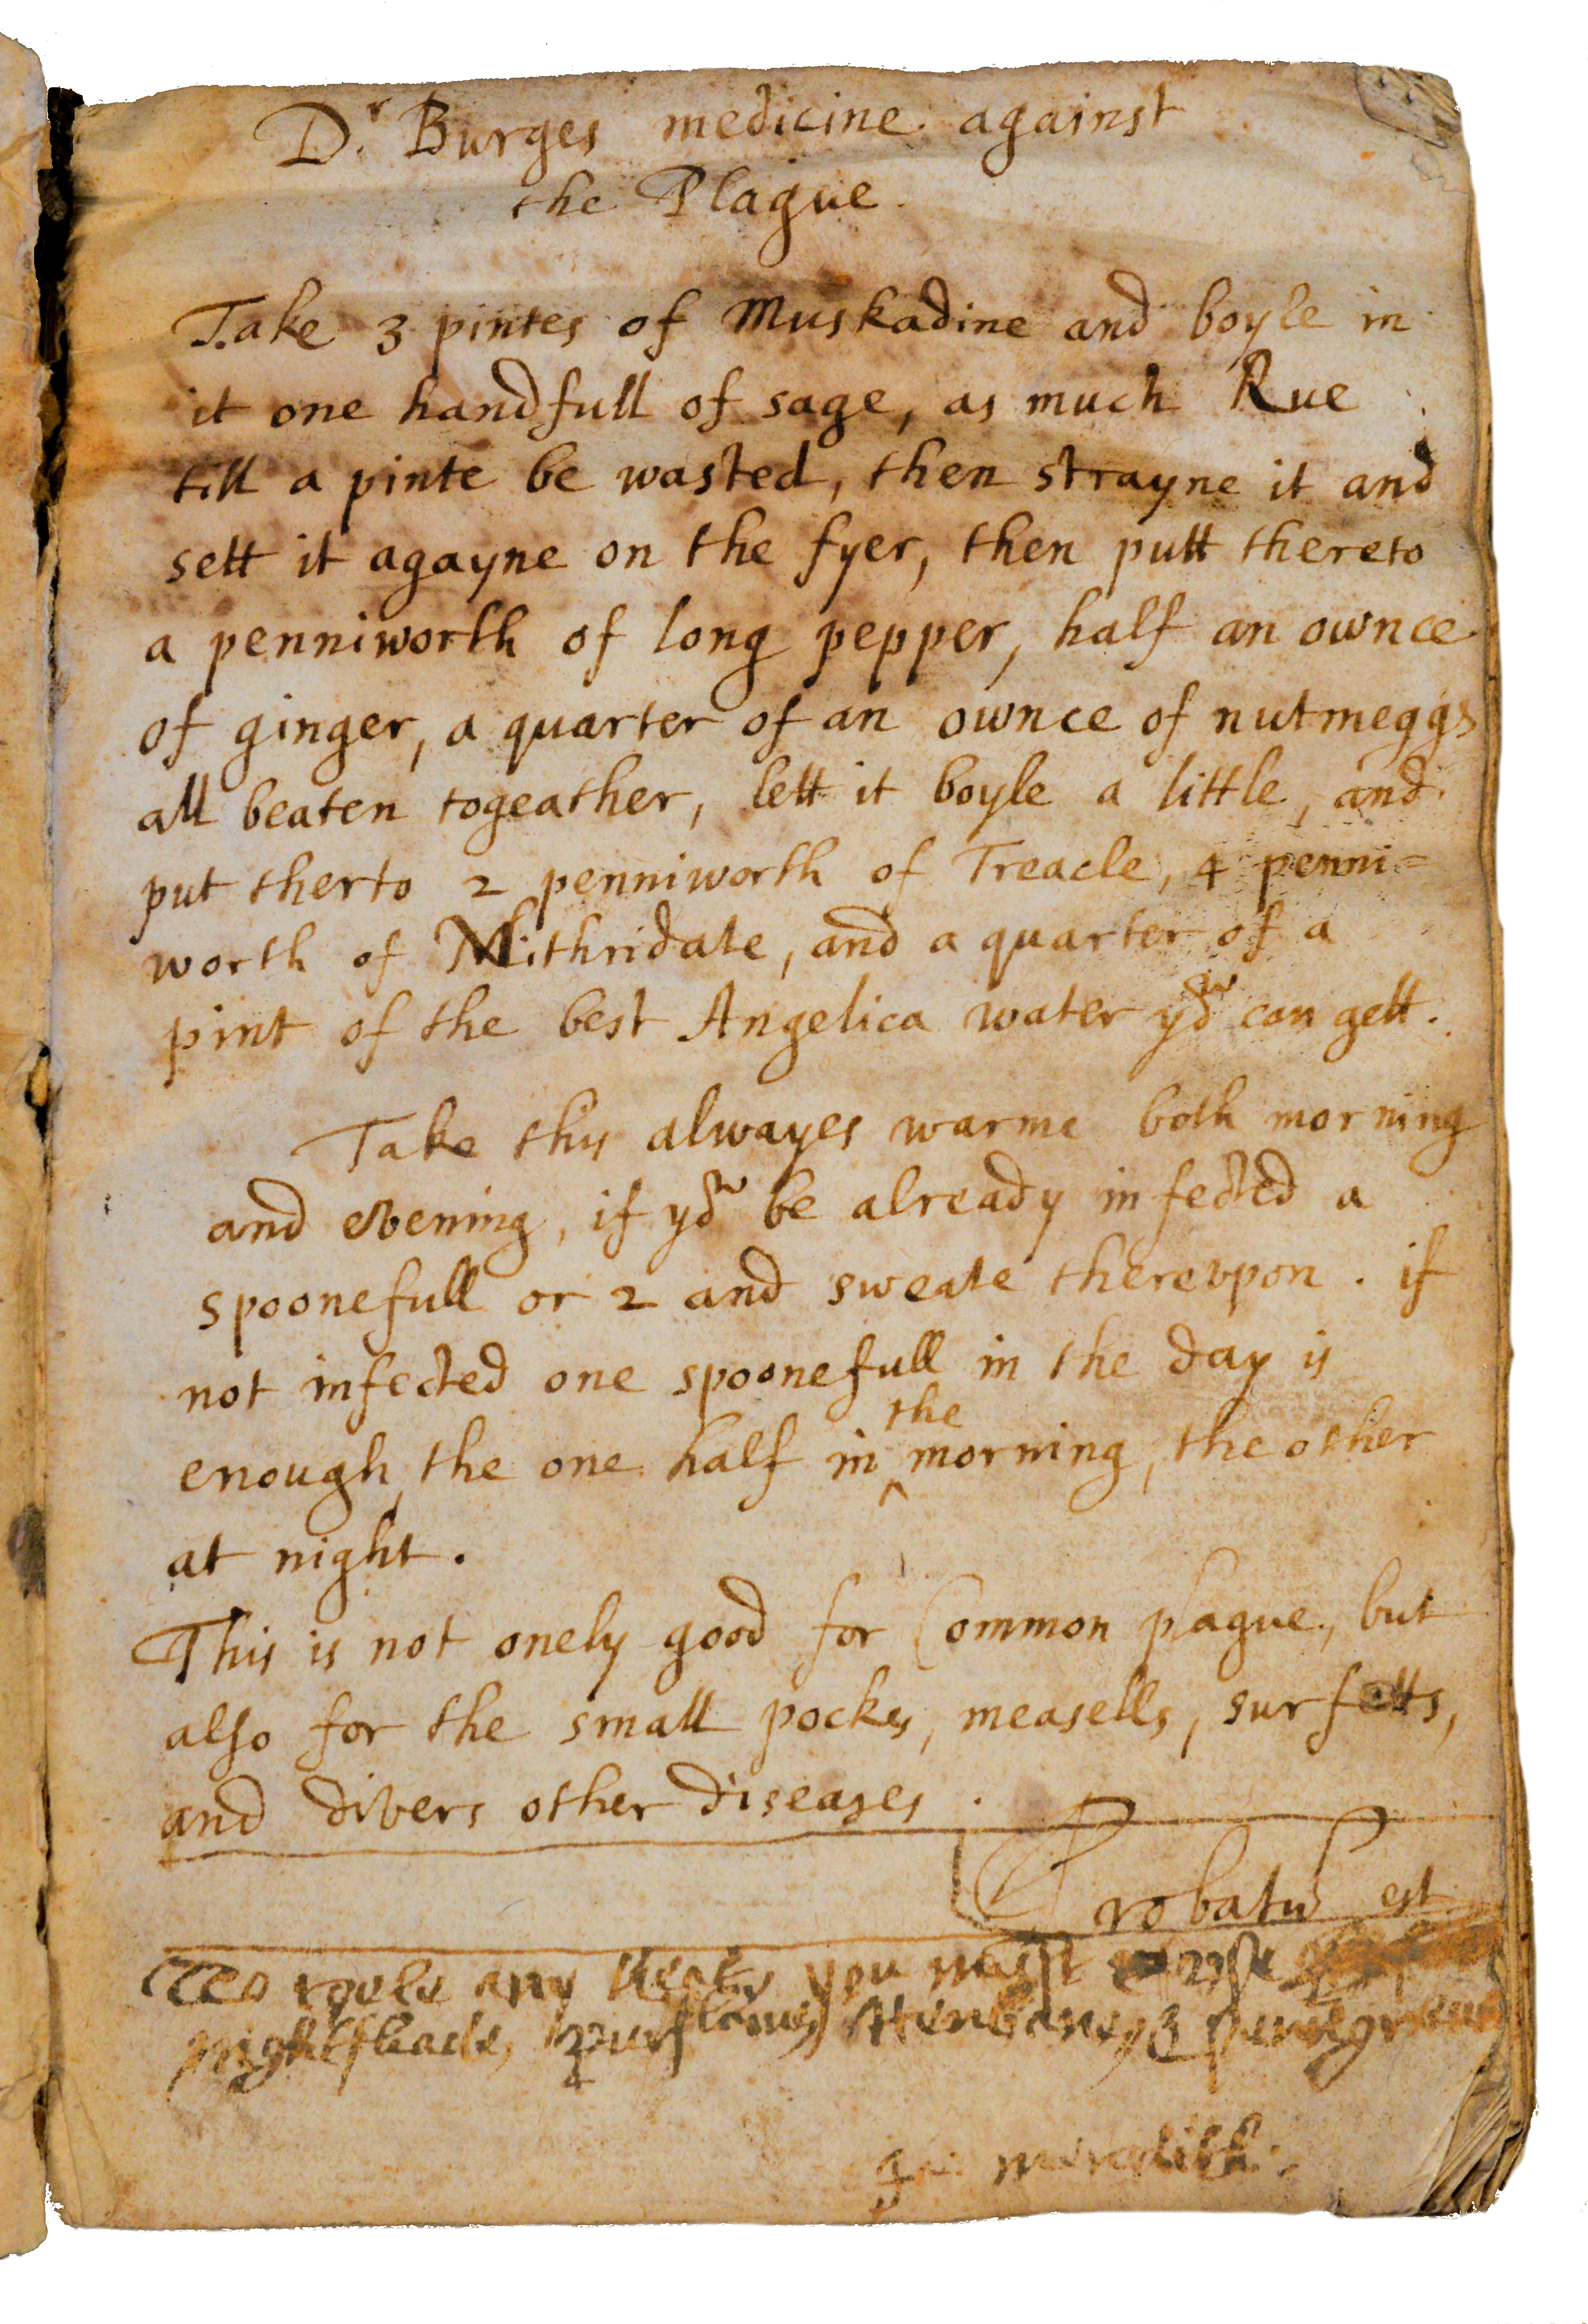 Dr. Burges medicine against
the Plague.
Take 3 pintes of Muskadine and boyle in
it one handfull of sage, as much Rue
till a pinte be wasted, then strayne it and
sett it agayne on the fyer, then putt thereto
a penniworth of long pepper, half an ownce
of ginger, a quarter of an ownce of nutmeggs
all beaten togeather, lett it boyle a little, and
put therto 2 penniworth of Treacle, 4 penni=
worth of Mithridate, and a quarter of a
pint of the best Angelica water you can gett.
Take this alwayes warme both morning
and evening, if you be already infected a
spoonefull or 2 and sweate therevpon. if
not infected one spoonefull in the day is
enough, the one half in the morning, the other
at night.
This is not onely good for Common plague, but
also for the small pockes, measells, surfetts,
and divers other diseases.
Probatu est
any you must
nightshade, Henbane, &
meredith